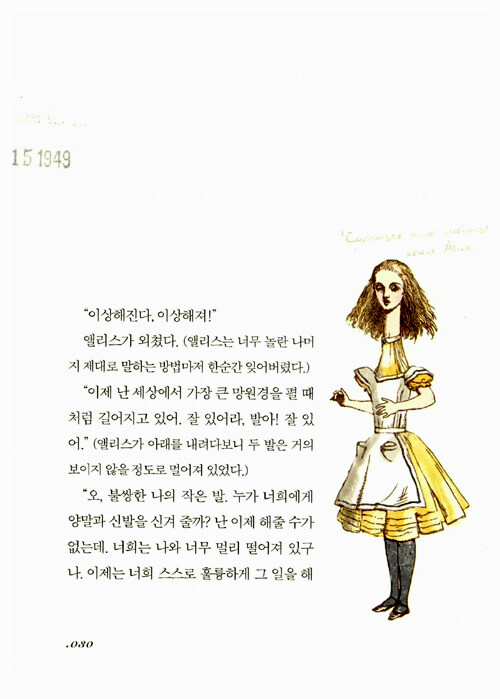 15 1949
"Curiouser and curiouser!"
cried Alice
“이상해진다, 이상해져!”
앨리스가 외쳤다. (앨리스는 너무 놀란 나머
지 제대로 말하는 방법마저 한순간 잊어버렸다.)
“이제 난 세상에서 가장 큰 망원경을 펼 때
처럼 길어지고 있어. 잘 있어라, 발아! 잘 있
어.” (앨리스가 아래를 내려다보니 두 발은 거의
보이지 않을 정도로 멀어져 있었다.)
“오, 불쌍한 나의 작은 발. 누가 너희에게
양말과 신발을 신겨 줄까? 난 이제 해줄 수가
없는데. 너희는 나와 너무 멀리 떨어져 있구
나. 이제는 너희 스스로 훌륭하게 그 일을 해
.030